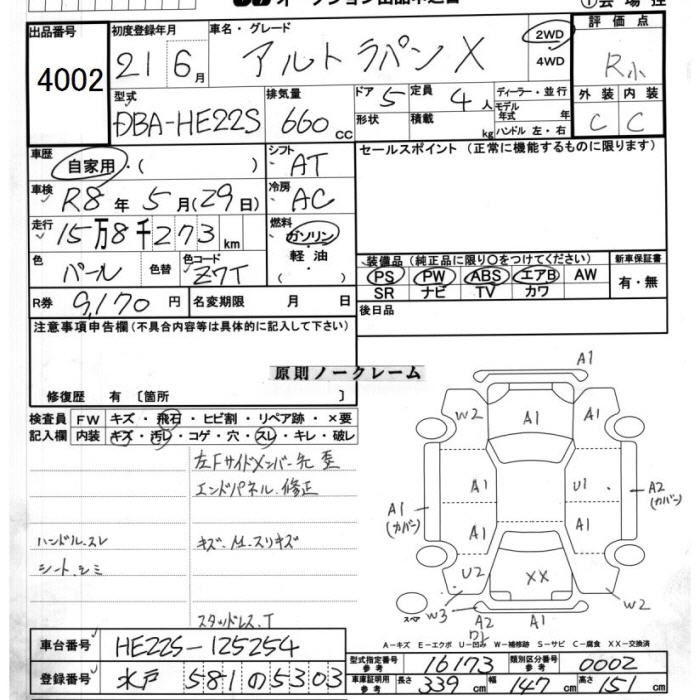 オークション出品申込書
①会場控
出品番号
4002
初度登録年月
21 6月
車名・グレード
アルト ラパン X
2WD
4WD
評価点
R小
外装 内装
C C
型式
DBA-HE22S
排気量
660cc
ドア 5
形状
定員 4人
積載 kg
ディーラー・並行
モデル年式 年
ハンドル 左・右
車歴
自家用・( )
シフト
AT
セールスポイント(正常に機能するものに限ります)
車検
R8年 5月(29日)
冷房
AC
走行
15万8千273km
燃料
ガソリン・
軽油・
( )
色
パール
色替
色コード
Z7T
装備品(純正品に限り〇をつけてください)
PS PW ABS エアB AW
SR ナビ TV カワ
新車保証書
有・無
R券 9,170円
名変期限 月 日
後日品
注意事項申告欄(不具合内容等は具体的に記入して下さい)
修復歴 有 〔箇所 〕
原則ノークレーム
検査員記入欄
FW キズ・飛石・ヒビ割・リペア跡・×要
内装 キズ・汚レ・コゲ・穴・スレ・キレ・破レ
左Fサイドメンバー先歪
エンドパネル.修正
ハンドル.スレ
キズ.M.スリキズ
シート.シミ
スタッドレス.T
A1
W2
A1
A1
A1
U1
A1
(カバー)
A2
(カバー)
A1
A1
U2
XX
W3
W2
A2
A1
スペア
A-キズ E-エクボ U-凹み W-補修跡 S-サビ C-腐食 XX-交換済
車台番号
HE22S-125254
登録番号
水戸 581 の 5303
型式指定番号 参考 16173
類別区分番号 参考 0002
車庫証明用 参考 長さ 339cm 幅 147cm 高さ 151cm